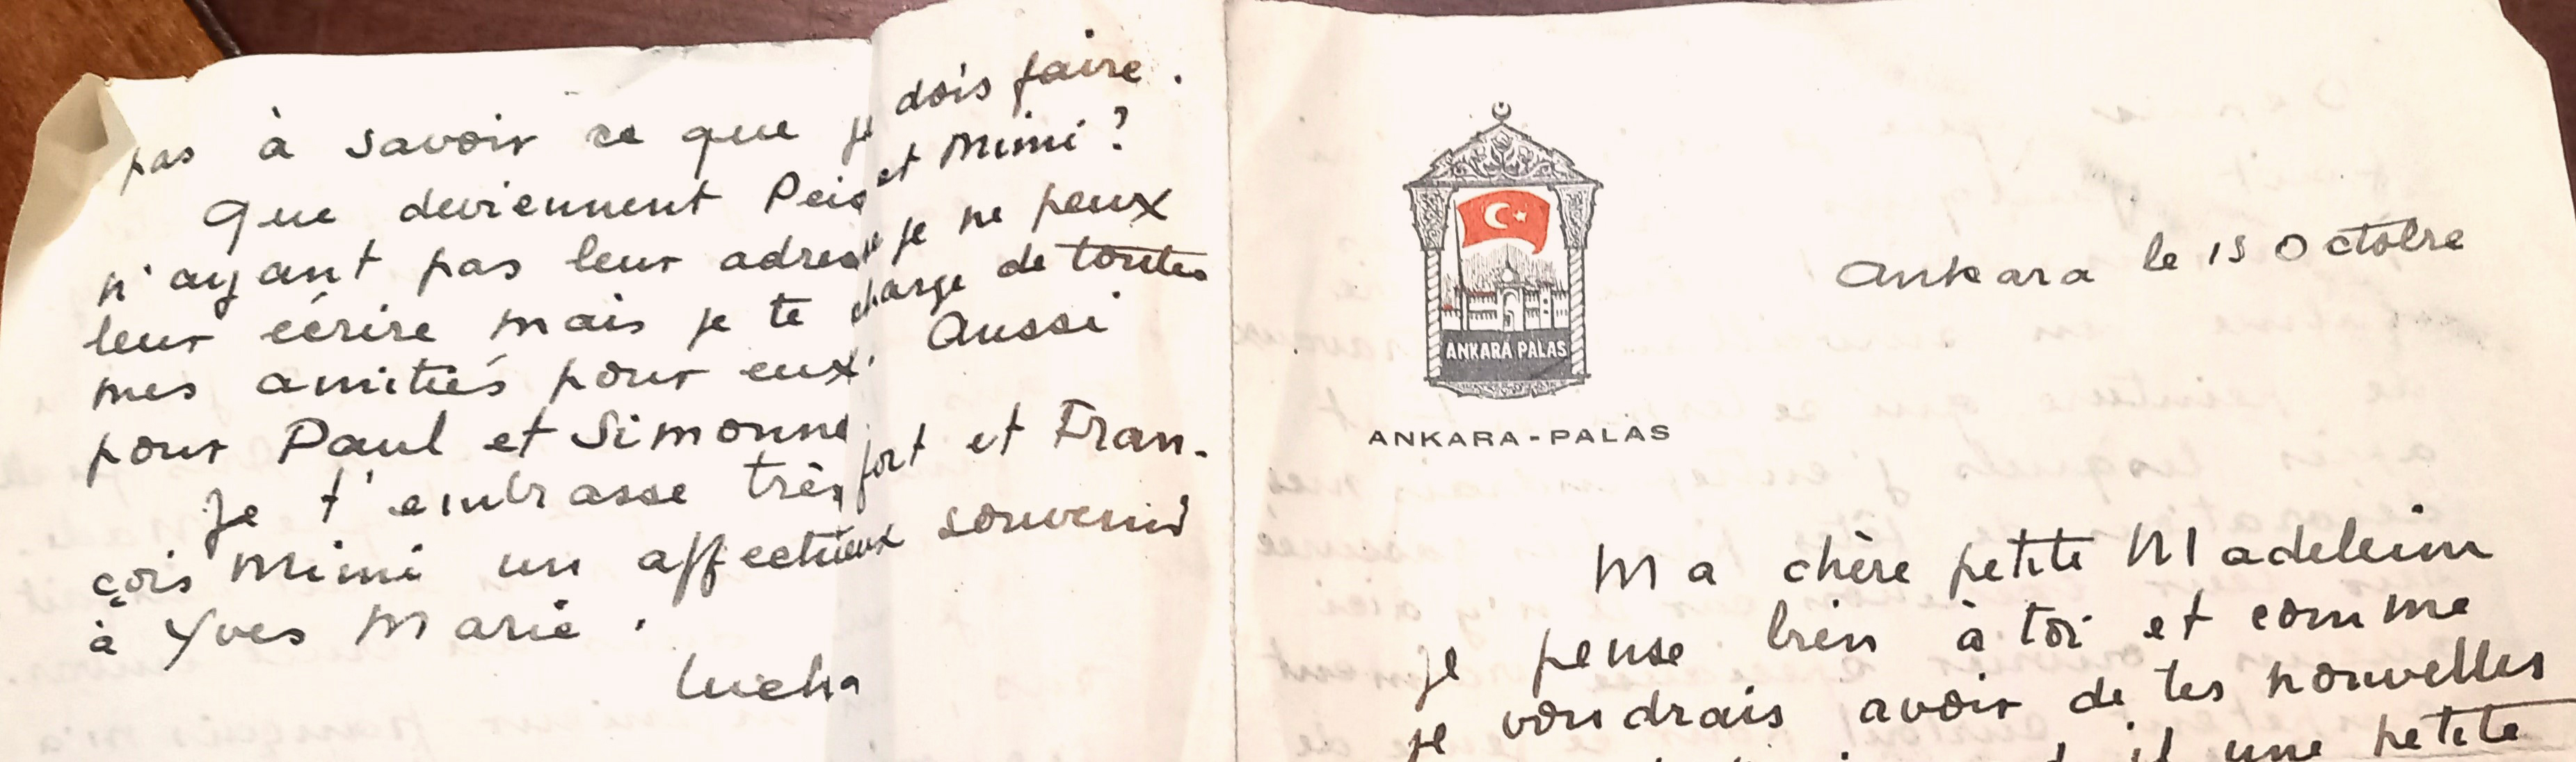 pas à savoir ce que je dois faire.
Que deviennent Peig et Mimi ?
n'ayant pas leur adresse je ne peux
leur écrire mais je te charge de toutes
mes amitiés pour eux. Aussi
pour Paul et Simonne.
Je t'embrasse très fort et Fran-
çois Mimi un affectueux souvenir
à Yves Marie.
ANKARA PALAS
ANKARA-PALAS
Ankara le 15 Octobre
Ma chère petite Madeleine
Je pense bien à toi et comme
je voudrais avoir de tes nouvelles
une petite